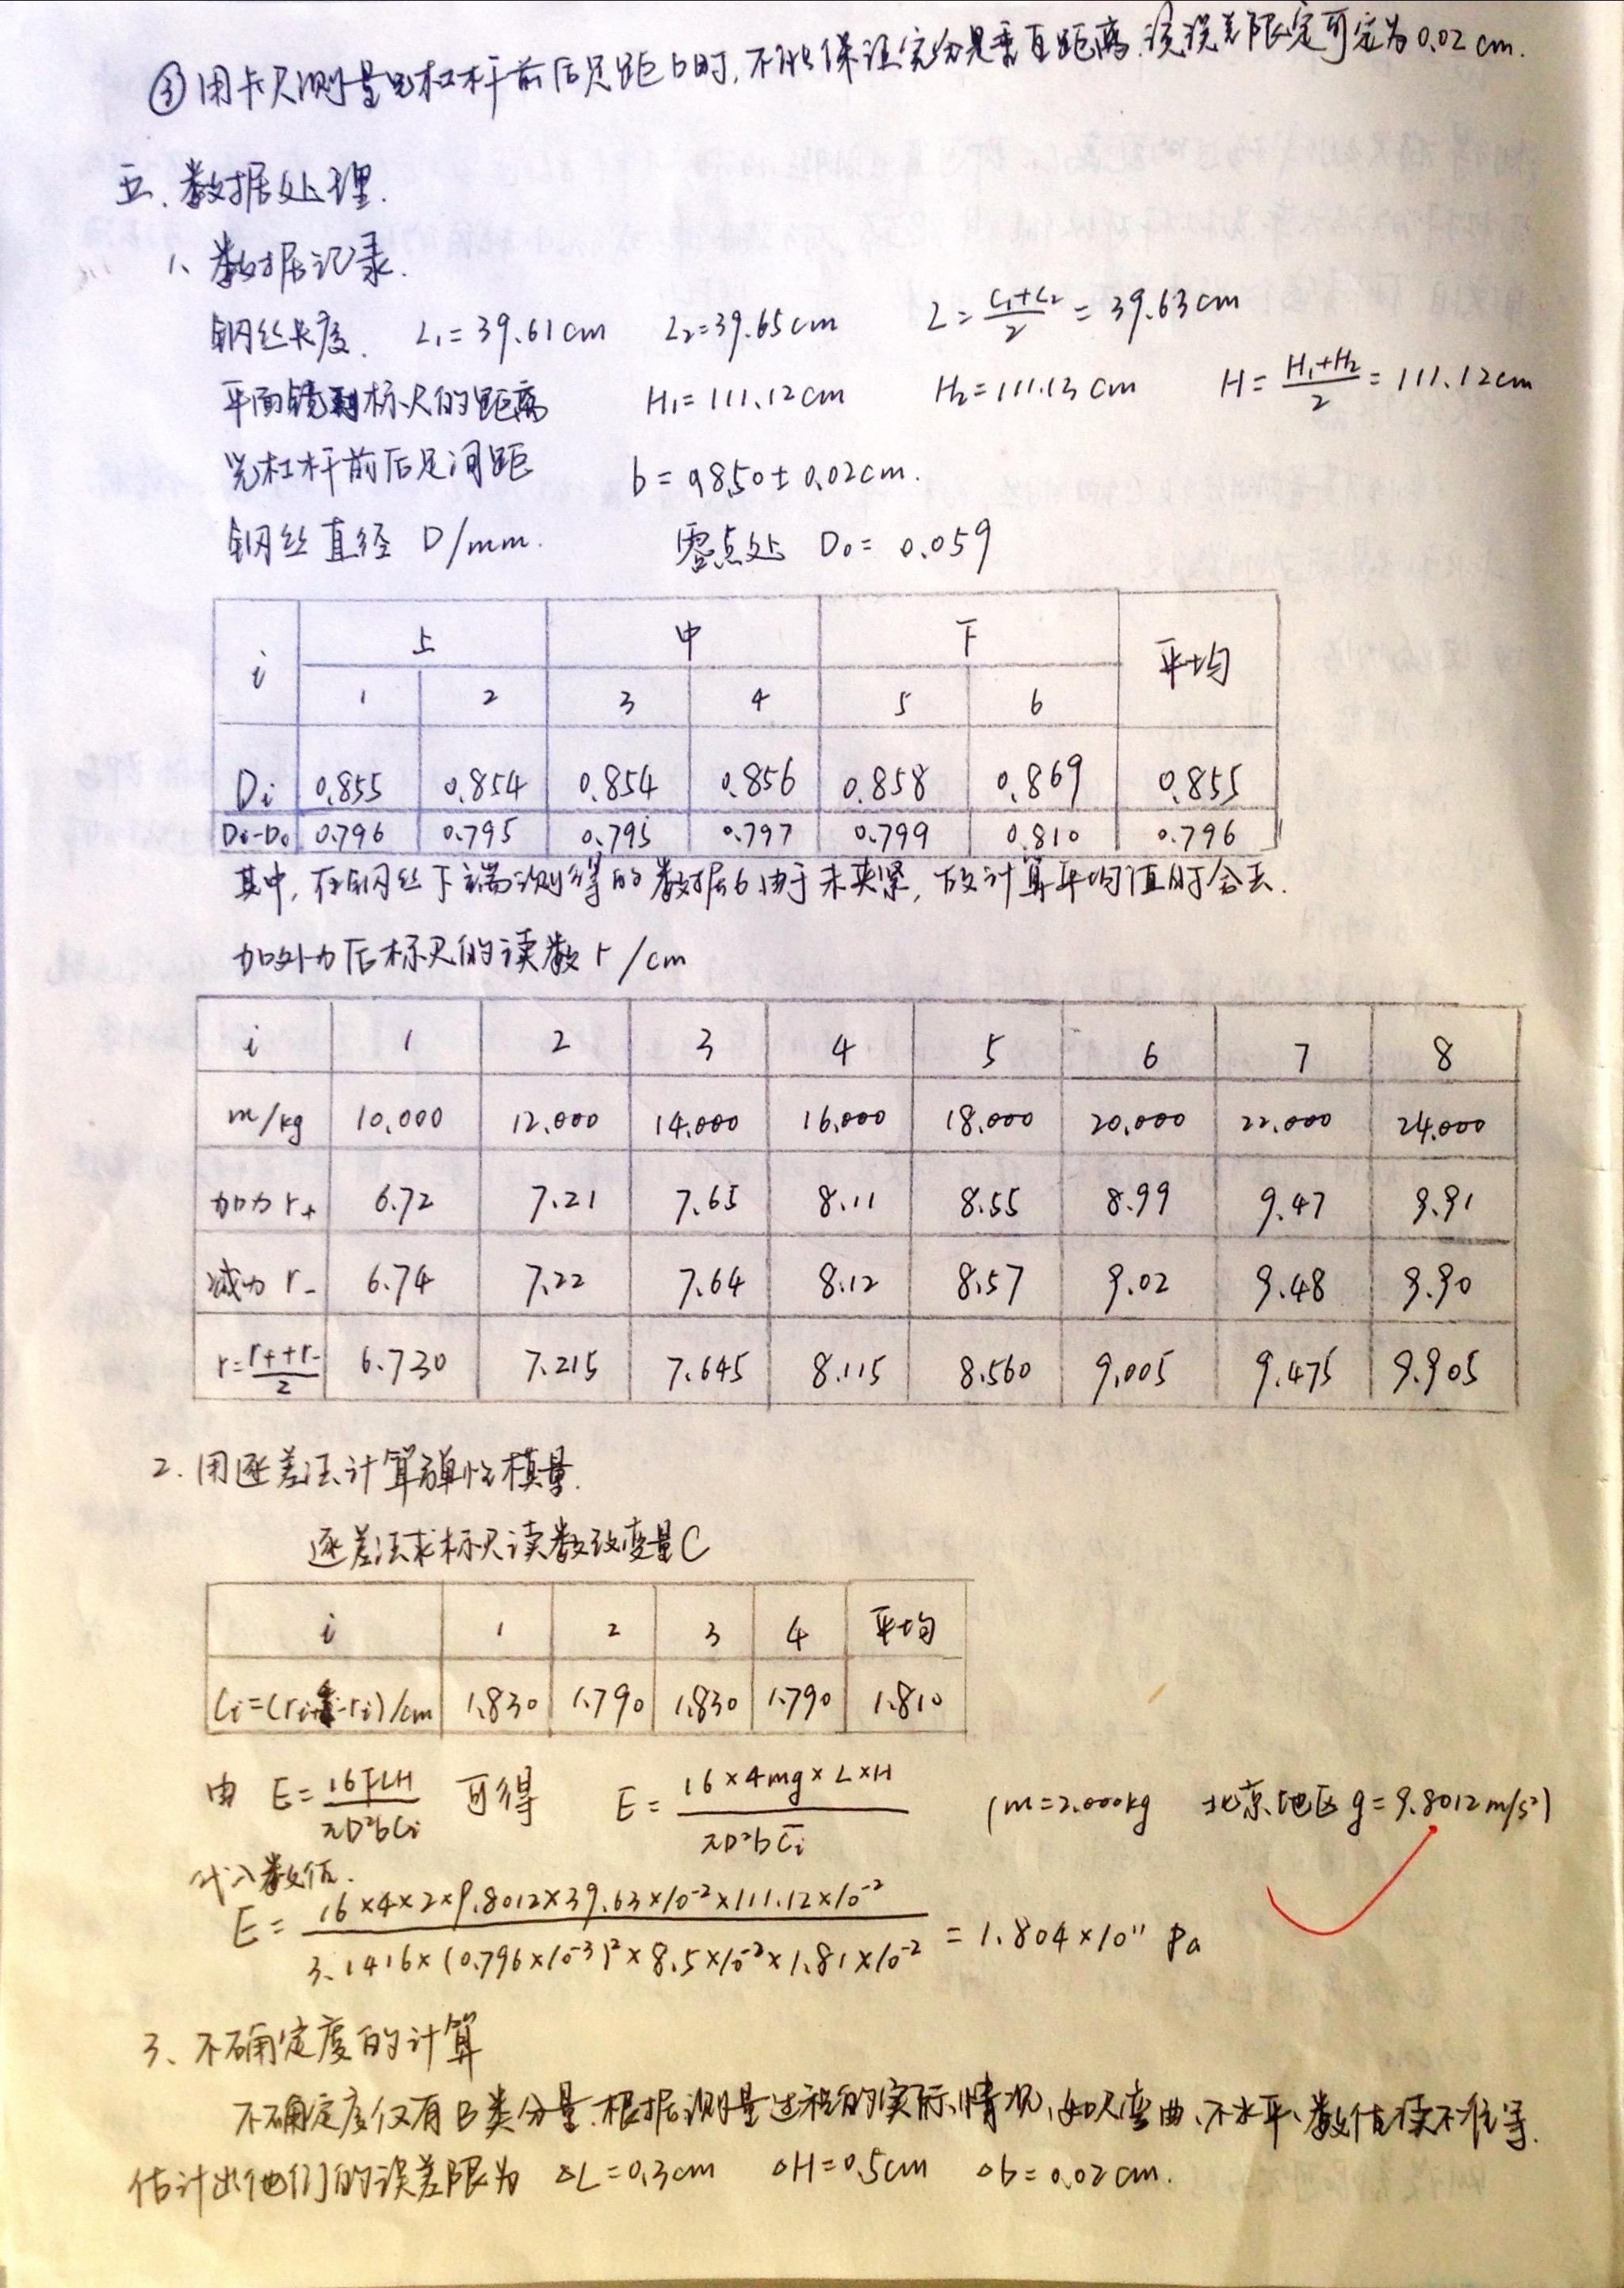 ③用卡尺测量光杠杆前后足距b时,不能保证完全是垂直距离.该误差限定可定为0.02cm.
五、数据处理.
1、数据记录.
钢丝长度. L₁=39.61cm L₂=39.65cm L=(L₁+L₂)/2=39.63cm
平面镜到标尺的距离 H₁=111.12cm H₂=111.13cm H=(H₁+H₂)/2=111.12cm
光杠杆前后足间距 b=8.50±0.02cm.
钢丝直径 D/mm. 零点处 D₀=0.059
i 上 中 下 平均
1 2 3 4 5 6
Di 0.855 0.854 0.854 0.856 0.858 0.869 0.855
Di-D₀ 0.796 0.795 0.795 0.797 0.799 0.810 0.796
其中,在钢丝下端测得的数据6由于未夹紧,故计算平均值时舍去.
加外力后标尺的读数r/cm
i 1 2 3 4 5 6 7 8
m/kg 10.000 12.000 14.000 16.000 18.000 20.000 22.000 24.000
加力r₊ 6.72 7.21 7.65 8.11 8.55 8.99 9.47 9.91
减力r₋ 6.74 7.22 7.64 8.12 8.57 9.02 9.48 9.90
r=(r₊+r₋)/2 6.730 7.215 7.645 8.115 8.560 9.005 9.475 9.905
2.用逐差法计算弹性模量.
逐差法求标尺读数改变量C
i 1 2 3 4 平均
Ci=(ri+4-ri)/cm 1.830 1.790 1.830 1.790 1.810
由 E=16FLH/πD²bCi 可得 E=16×4mg×L×H/πD²bC̄i (m=2.000kg 北京地区g=9.8012m/s²)
代入数值.
E=16×4×2×9.8012×39.63×10⁻²×111.12×10⁻²/3.1416×(0.796×10⁻³)²×8.5×10⁻²×1.81×10⁻²=1.804×10¹¹ Pa
3、不确定度的计算
不确定度仅有B类分量.根据测量过程的实际情况,如尺弯曲、不水平、数值读不准等.
估计出他们的误差限为 ΔL=0.3cm ΔH=0.5cm Δb=0.02cm.